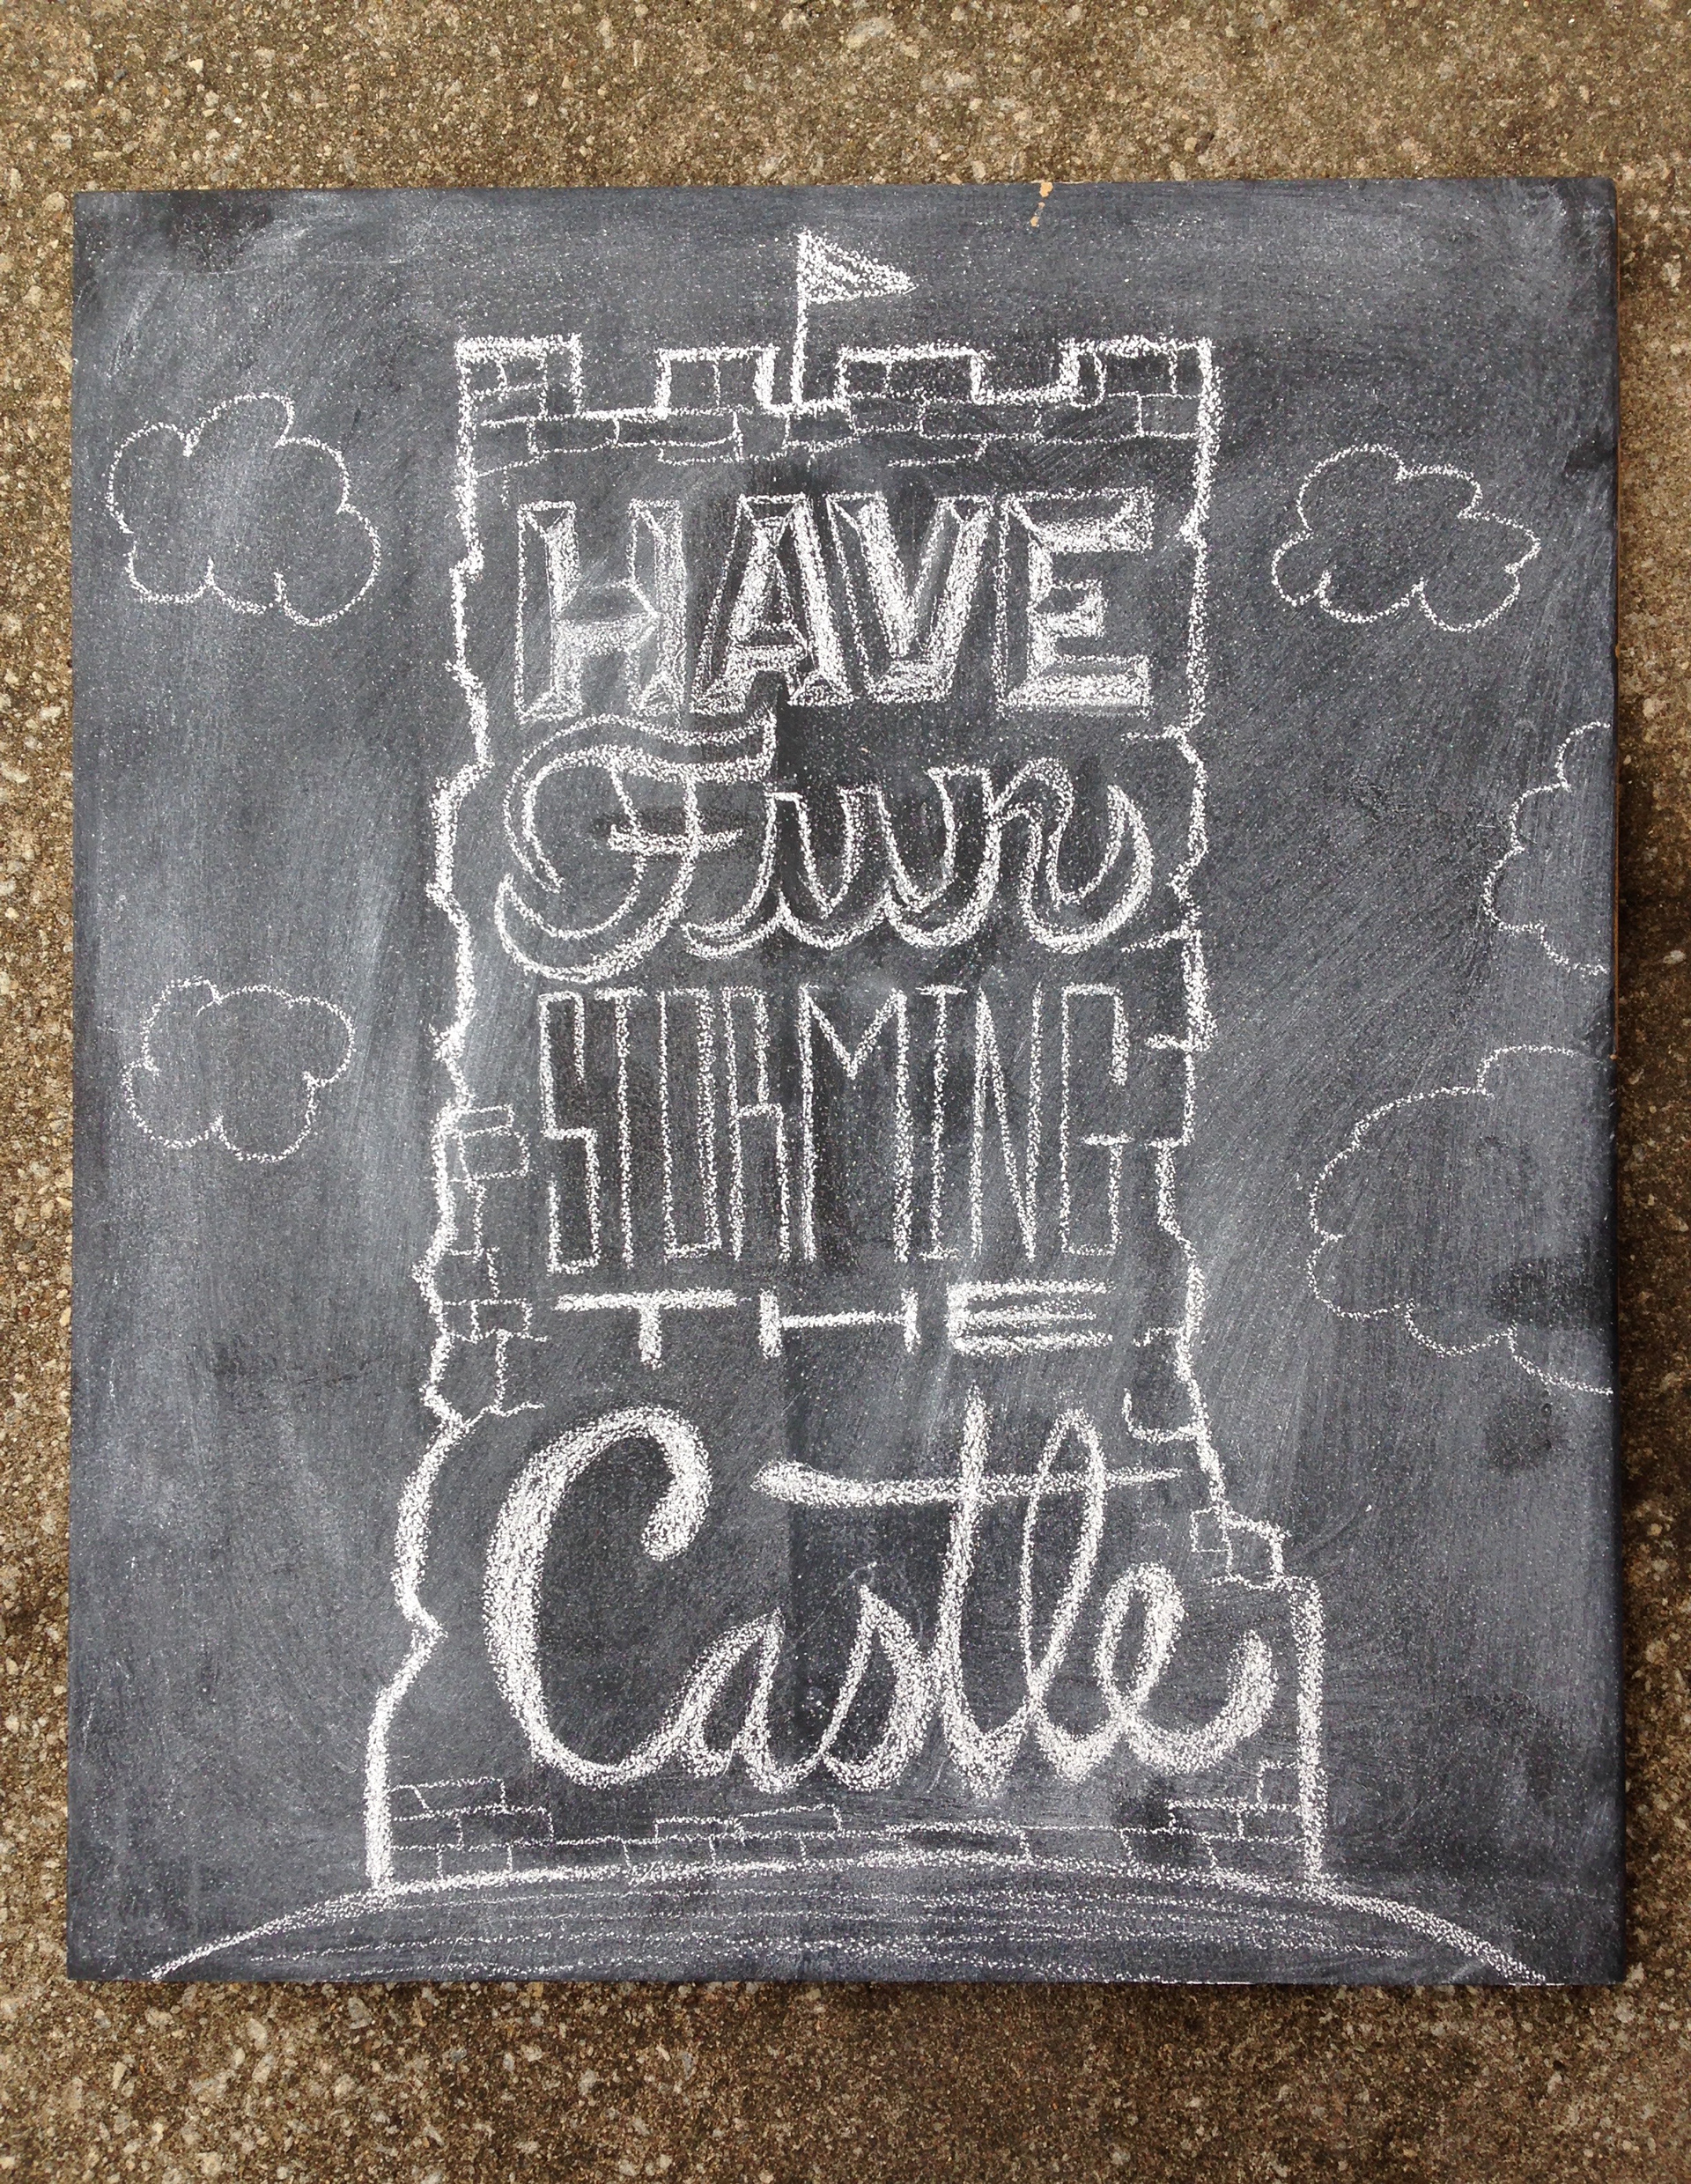 HAVE
Fun
STORMING
THE
Castle